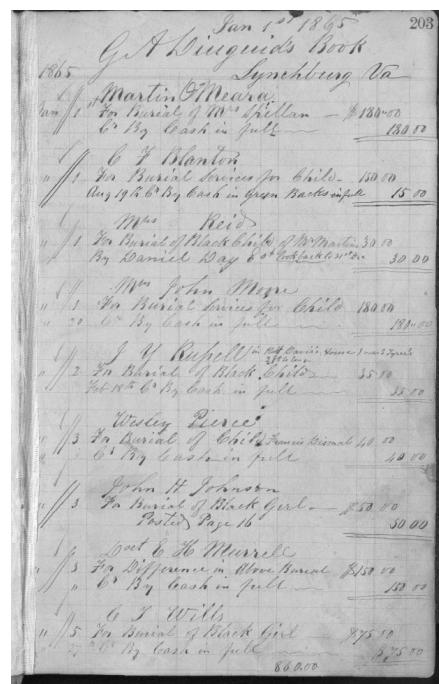 203
Jan 1st 1865
G A Diuguid's Book
1865 Lynchburg Va
Martin O'Meara
Jan 1st For Burial of Mrs Spillan — $180.00
" Cr By Cash in full — 180.00
C F Blanton
" 1 For Burial Services for Child — 150.00
Aug 19th Cr By Cash in Green Backs in full 15 00
Mrs Reid
" 1 For Burial of Black Child of Mr Martin 30.00
By Daniel Day 30 00
Mrs John Moore
" 1 For Burial Services for Child 180.00
" 20 Cr By Cash in full — 180.00
J Y Russell in House
" 2 For Burial of Black Child — 35.00
Feb 18th Cr By Cash in full — 35 00
Wesley Pierce
" 3 For Burial of Child Francis Dismal 40 00
" Cr By Cash in full 40 00
John H Johnson
" 3 For Burial of Black Girl — $50.00
Posted Page 16 50 00
Doct E H Murrell
" 3 For Difference in Above Burial $150 00
" Cr By Cash in full — 150 00
C T Wills
" 5 For Burial of Black Girl $75.00
" Cr By Cash in full — $75.00
860.00